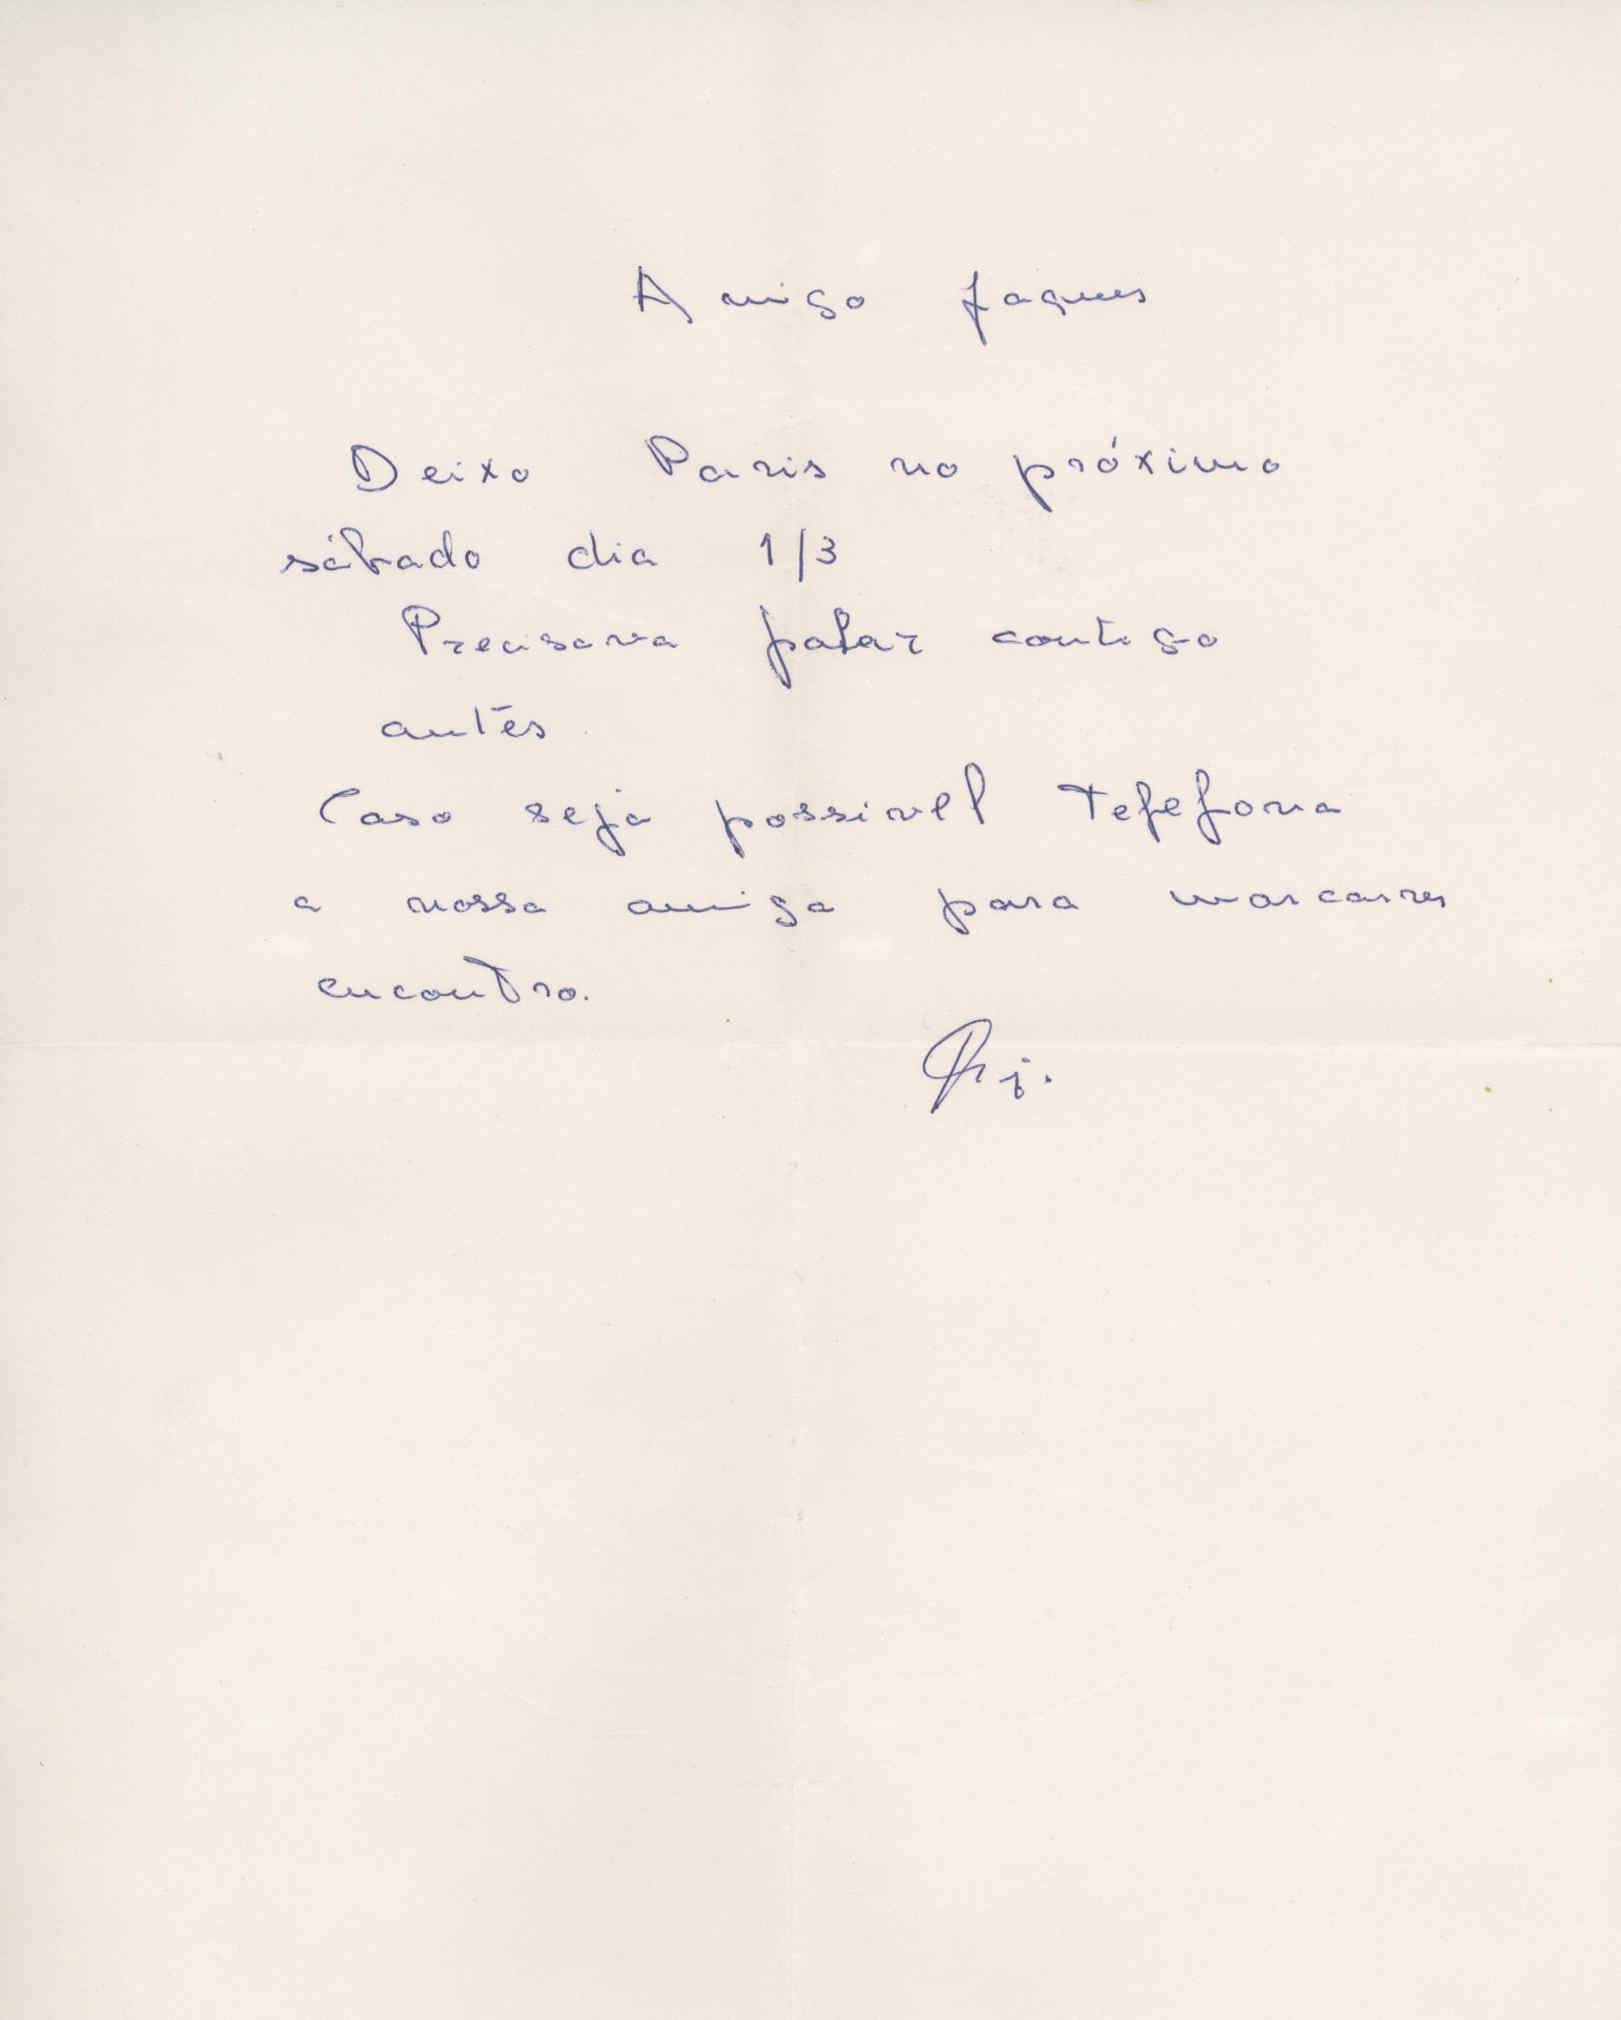 Amigo Jaques
Deixo Paris no próximo
sábado dia 1/3
Precisava falar contigo
antes
Caso seja possivel telefona
a nossa amiga para marcares
encontro.